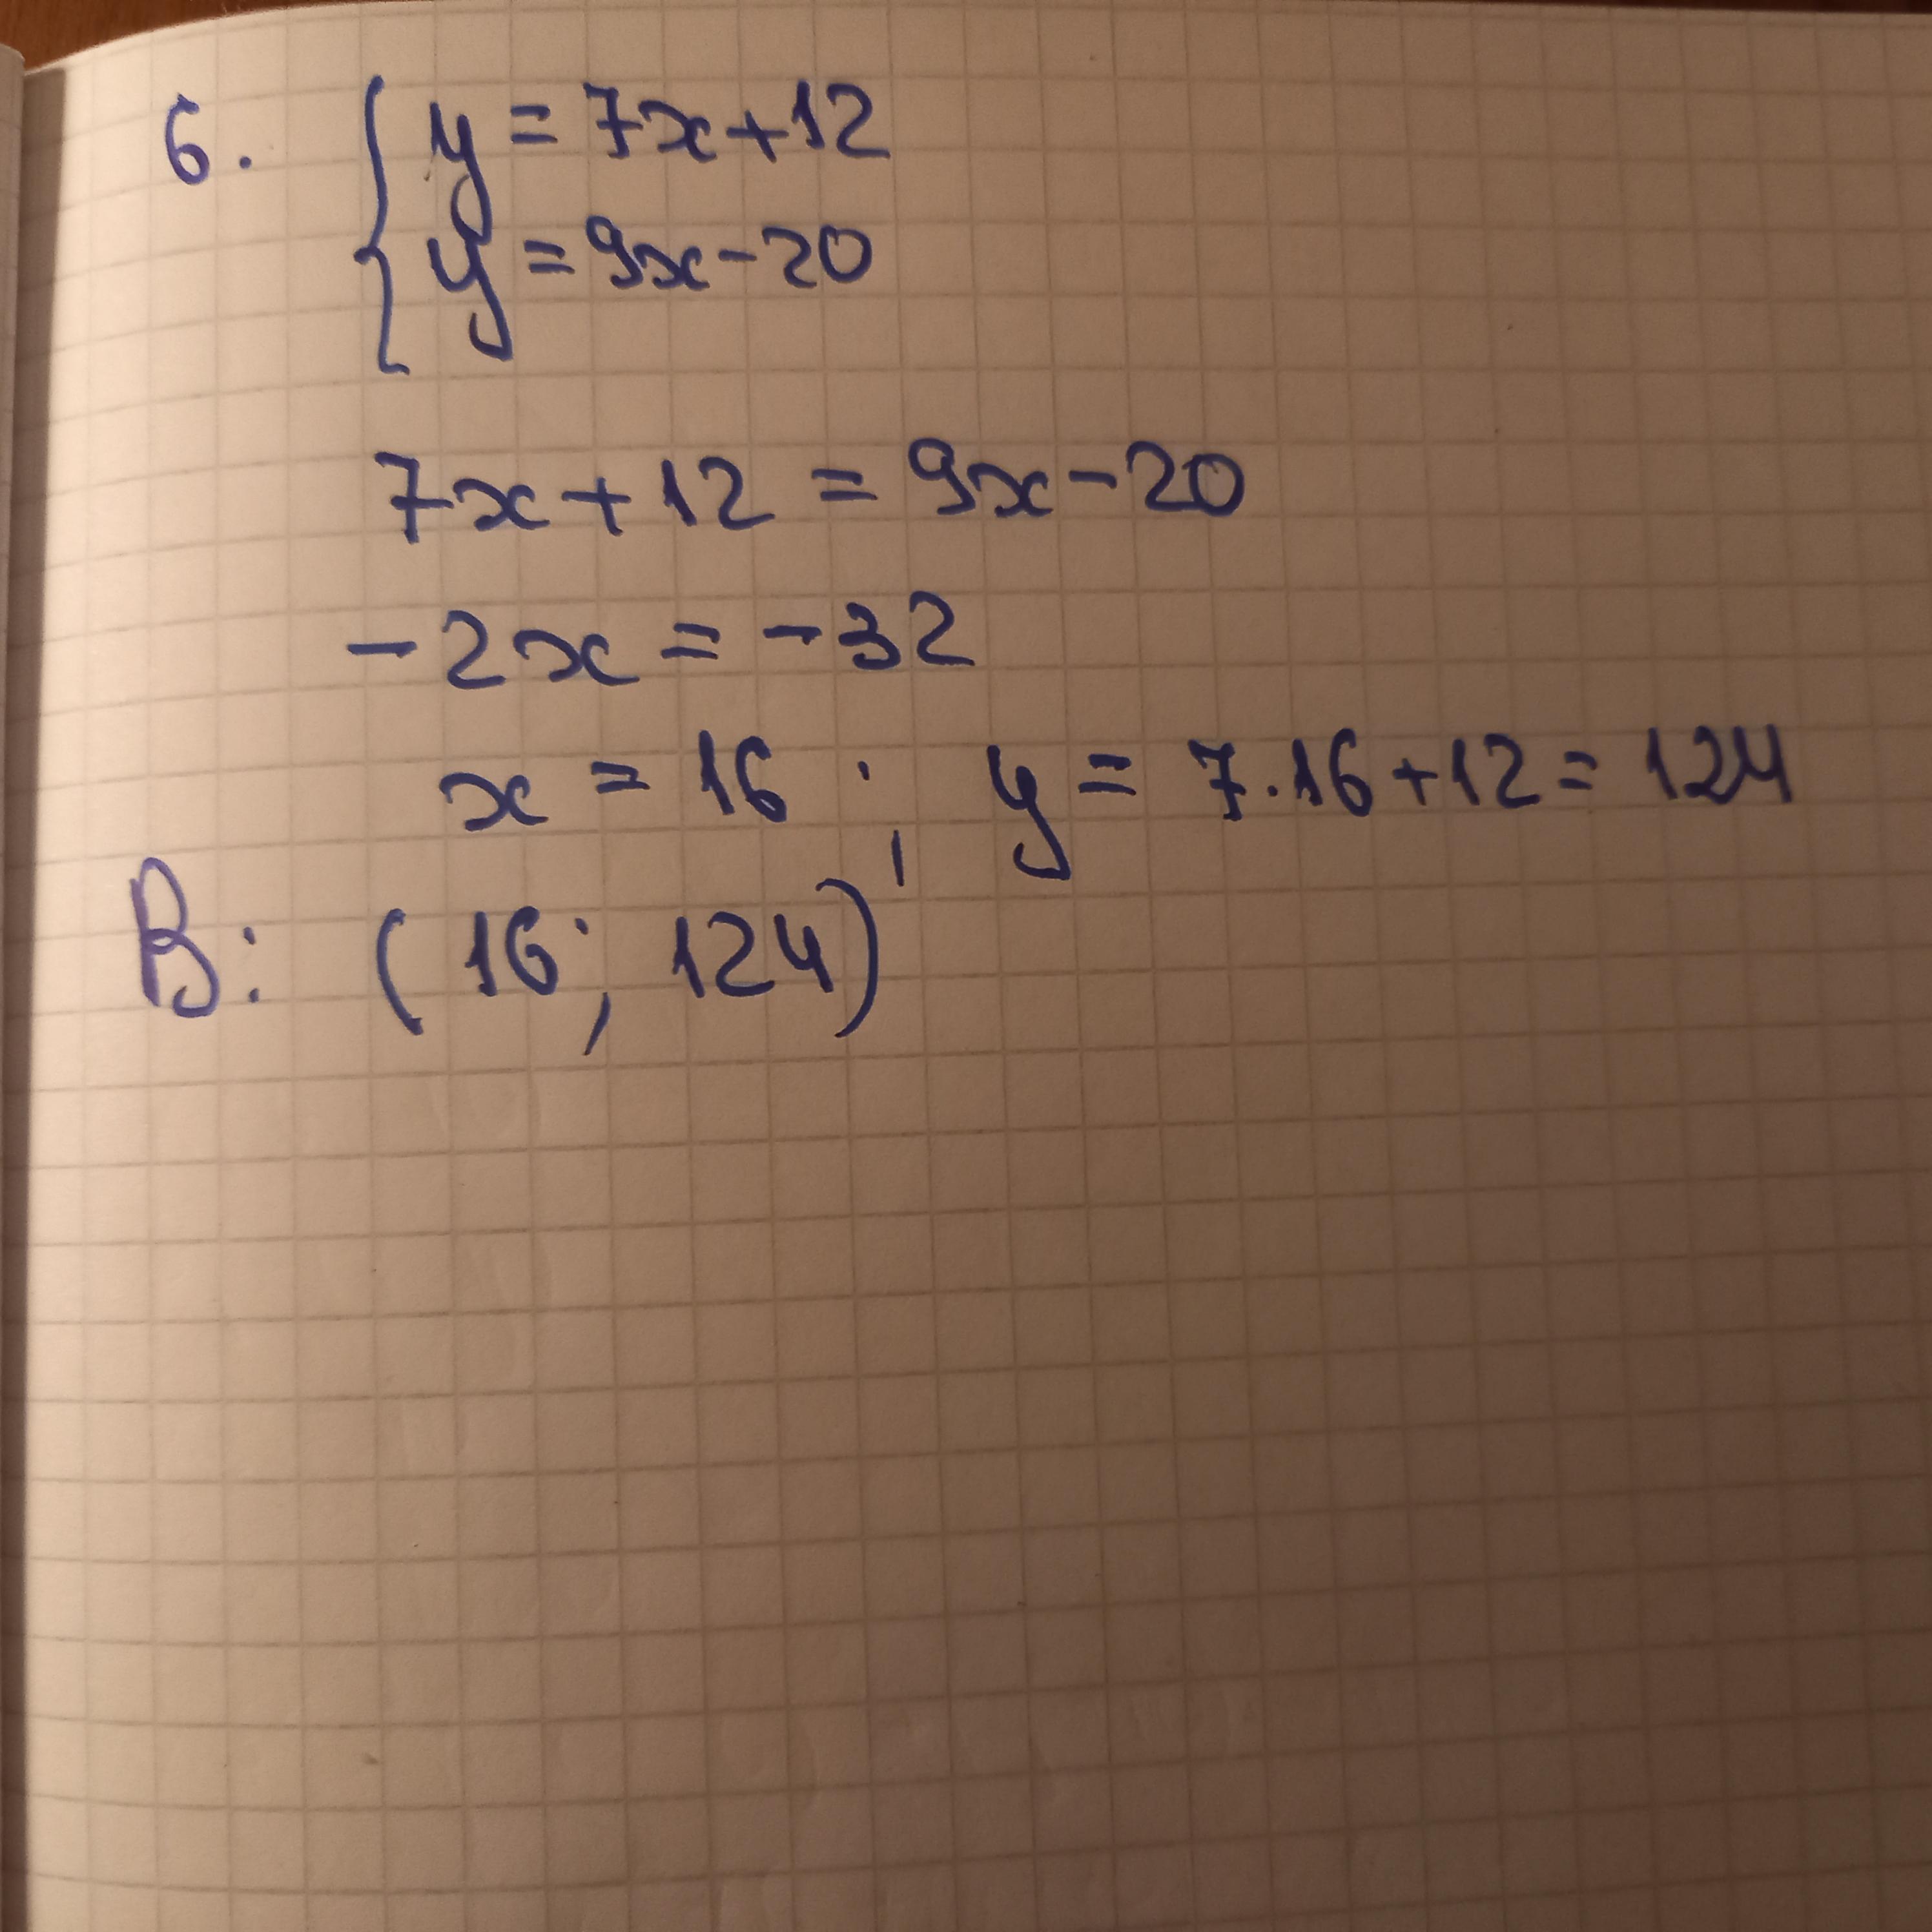 6. { y = 7x+12
y = 9x-20
7x+12 = 9x-20
-2x = -32
x = 16 ; y = 7·16+12= 124
В: (16; 124)